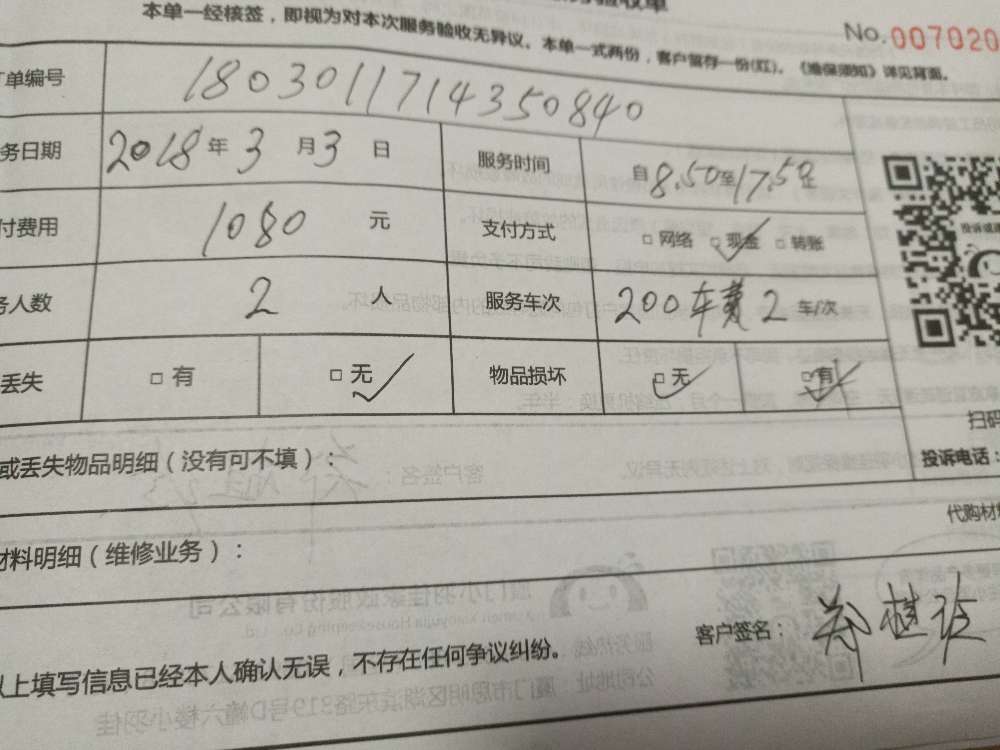 验收单
本单一经核签，即视为对本次服务验收无异议。本单一式两份，客户留存一份(红)。《维保须知》详见背面。
No.007020
单编号 1803011714350840
务日期 2018年3月3日 服务时间 自8.50至17.50止
付费用 1080元 支付方式 □网络 □现金 □转账
务人数 2人 服务车次 200车费2车/次
丢失 □有 □无 物品损坏 □无 □有
投诉或
或丢失物品明细（没有可不填）：
扫码
投诉电话：
代购材
材料明细（维修业务）：
客户签名：
以上填写信息已经本人确认无误，不存在任何争议纠纷。